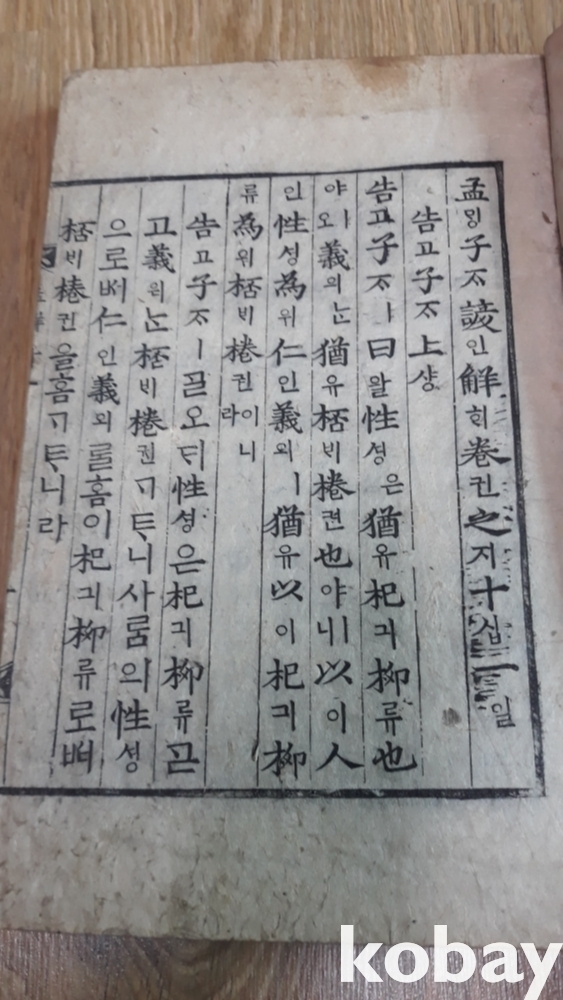 孟ᄆᆡᆼ子ᄌᆞ諺언解ᄒᆡ卷권之지十십一일
告고子ᄌᆞ上샹
告고子ᄌᆞㅣ曰왈性셩은猶유杞긔柳류也
야ㅣ오義의ᄂᆞᆫ猶유桮ᄇᆡ棬권也야ㅣ니以이人
인性셩為위仁인義의ㅣ猶유以이杞긔柳
류為위桮ᄇᆡ棬권이니라
告고子ᄌᆞㅣᄀᆞᆯ오ᄃᆡ性셩은杞긔柳류ᄀᆞᆮ
고義의ᄂᆞᆫ桮ᄇᆡ棬권ᄀᆞᄐᆞ니사ᄅᆞᆷ의性셩
으로ᄡᅥ仁인義의ᄅᆞᆯ홈이杞긔柳류로ᄡᅥ
桮ᄇᆡ棬권을홈ᄀᆞᄐᆞ니라
kobay